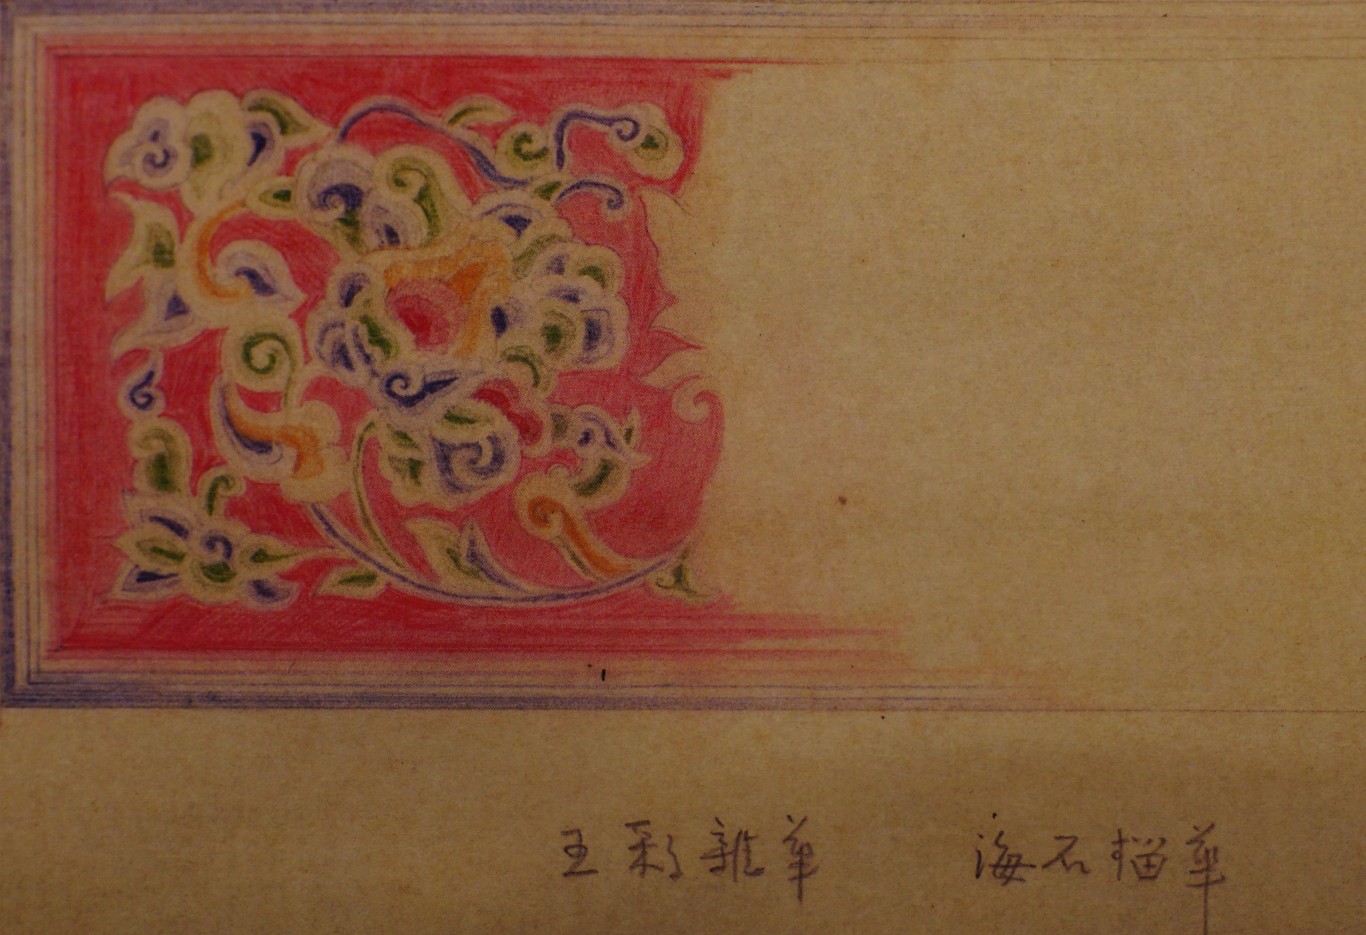 五彩雜華 海石榴華